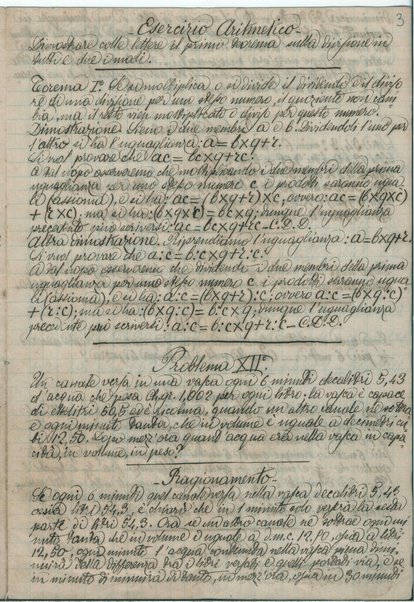 3
Esercizio Aritmetico
Dimostrare colle lettere il primo teorema sulla divisione in
tutti e due i modi.
Teorema I° Se si moltiplica o si divide il dividendo e il diviso
re di una divisione per uno stesso numero, il quoziente non cam
bia, ma il resto vien moltiplicato o diviso per questo numero.
Dimostrazione. Sieno i due numeri a e b. Dividendoli l'uno per
l'altro si ha l'uguaglianza: a = b×q+r.
Si vuol provare che ac = bc×q+rc.
A tal uopo osserveremo che moltiplicando i due membri della prima
uguaglianza per uno stesso numero c i prodotti saranno ugua
li (assioma), e si ha: ac = (b×q+r)×c, ovvero: ac = (b×q×c)
+ (r×c); ma si ha: (b×q×c) = bc×q; dunque l'uguaglianza
precedente può scriversi: ac = bc×q+rc — C.D.D.
Altra dimostrazione. Riprendiamo l'uguaglianza: a = b×q+r.
Si vuol provare che a:c = b:c×q+r:c.
A tal uopo osserveremo che dividendo i due membri della prima
uguaglianza per uno stesso numero c i prodotti saranno ugua
li (assioma), e si ha: a:c = (b×q+r):c; ovvero a:c = (b×q:c)
+ (r:c); ma si ha: (b×q:c) = b:c×q, dunque l'uguaglianza
precedente può scriversi: a:c = b:c×q+r:c — C.D.D.
Problema XII°
Un canale versa in una vasca ogni 6 minuti decalitri 5,43
d'acqua che pesa Chg. 1,002 per ogni litro; la vasca è capace
di ettolitri 60,5 ed è ricolma, quando un altro canale ne
ogni minuto tanta, che in volume è uguale a decimetri cu
bi 12,50. Dopo mezz'ora quant'acqua era nella vasca in capa
cità, in volume, in peso?
Ragionamento
Se ogni 6 minuti quel canale versa nella vasca decalitri 5,43
ossia litri 54,3, è chiaro che in 1 minuto solo verserà la sesta
parte di litri 54,3. Ora se un altro canale ne ogni mi
nuto tanta che in volume è uguale a d.m.c. 12,50, ossia a litri
12,50, ogni minuto l'acqua contenuta nella vasca prima dimi
nuirà della differenza tra i litri versati e quelli portati via, e se
in minuto diminuirà di tanto, in mezz'ora, ossia in 30 minuti